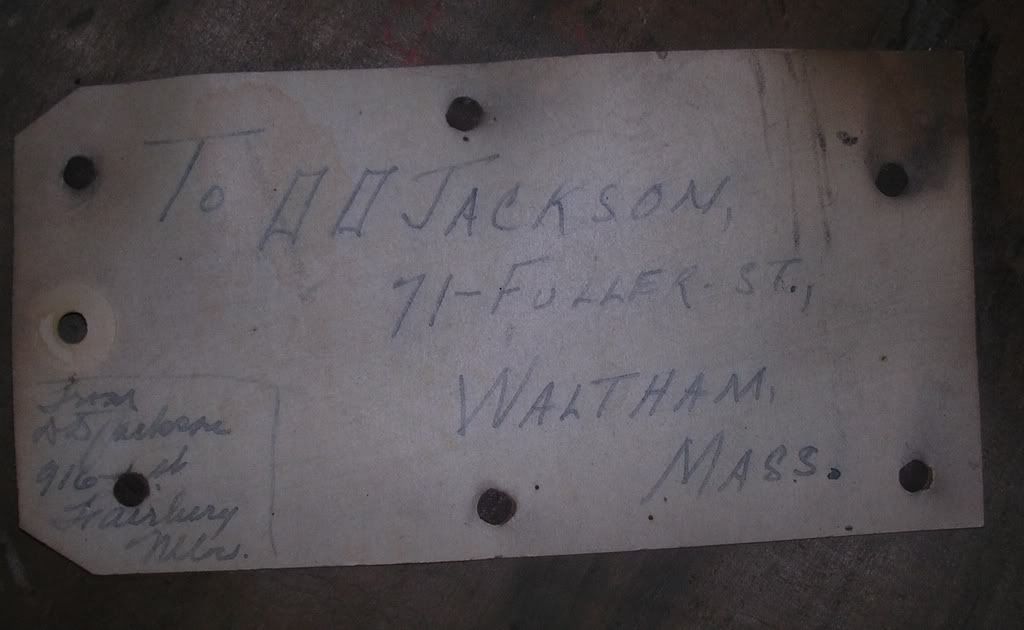 To DD JACKSON,
71-FULLER. ST.,
WALTHAM,
MASS.
From
DD Jackson
916 st
Fairbury
Nebr.